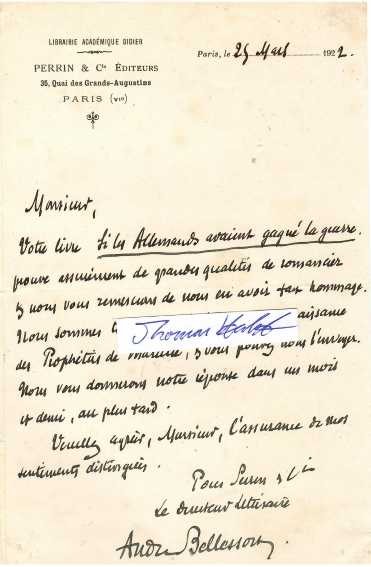 LIBRAIRIE ACADÉMIQUE DIDIER
PERRIN & Cie ÉDITEURS
35, Quai des Grands-Augustins
PARIS (VIe)
Paris, le 25 Mars 1922.
Monsieur,
Votre livre Si les Allemands avaient gagné la guerre
prouve assurément de grandes qualités de romancier
& nous vous remercions de nous en avoir fait hommage.
Nous sommes
Thomas
aissance
des Prophéties de & vous pouvez nous l'envoyer.
Nous vous donnerons notre réponse dans un mois
et demi, au plus tard.
Veuillez agréer, Monsieur, l'assurance de nos
sentiments distingués.
Pour Perrin & Cie
Le directeur littéraire
André Bellessort.